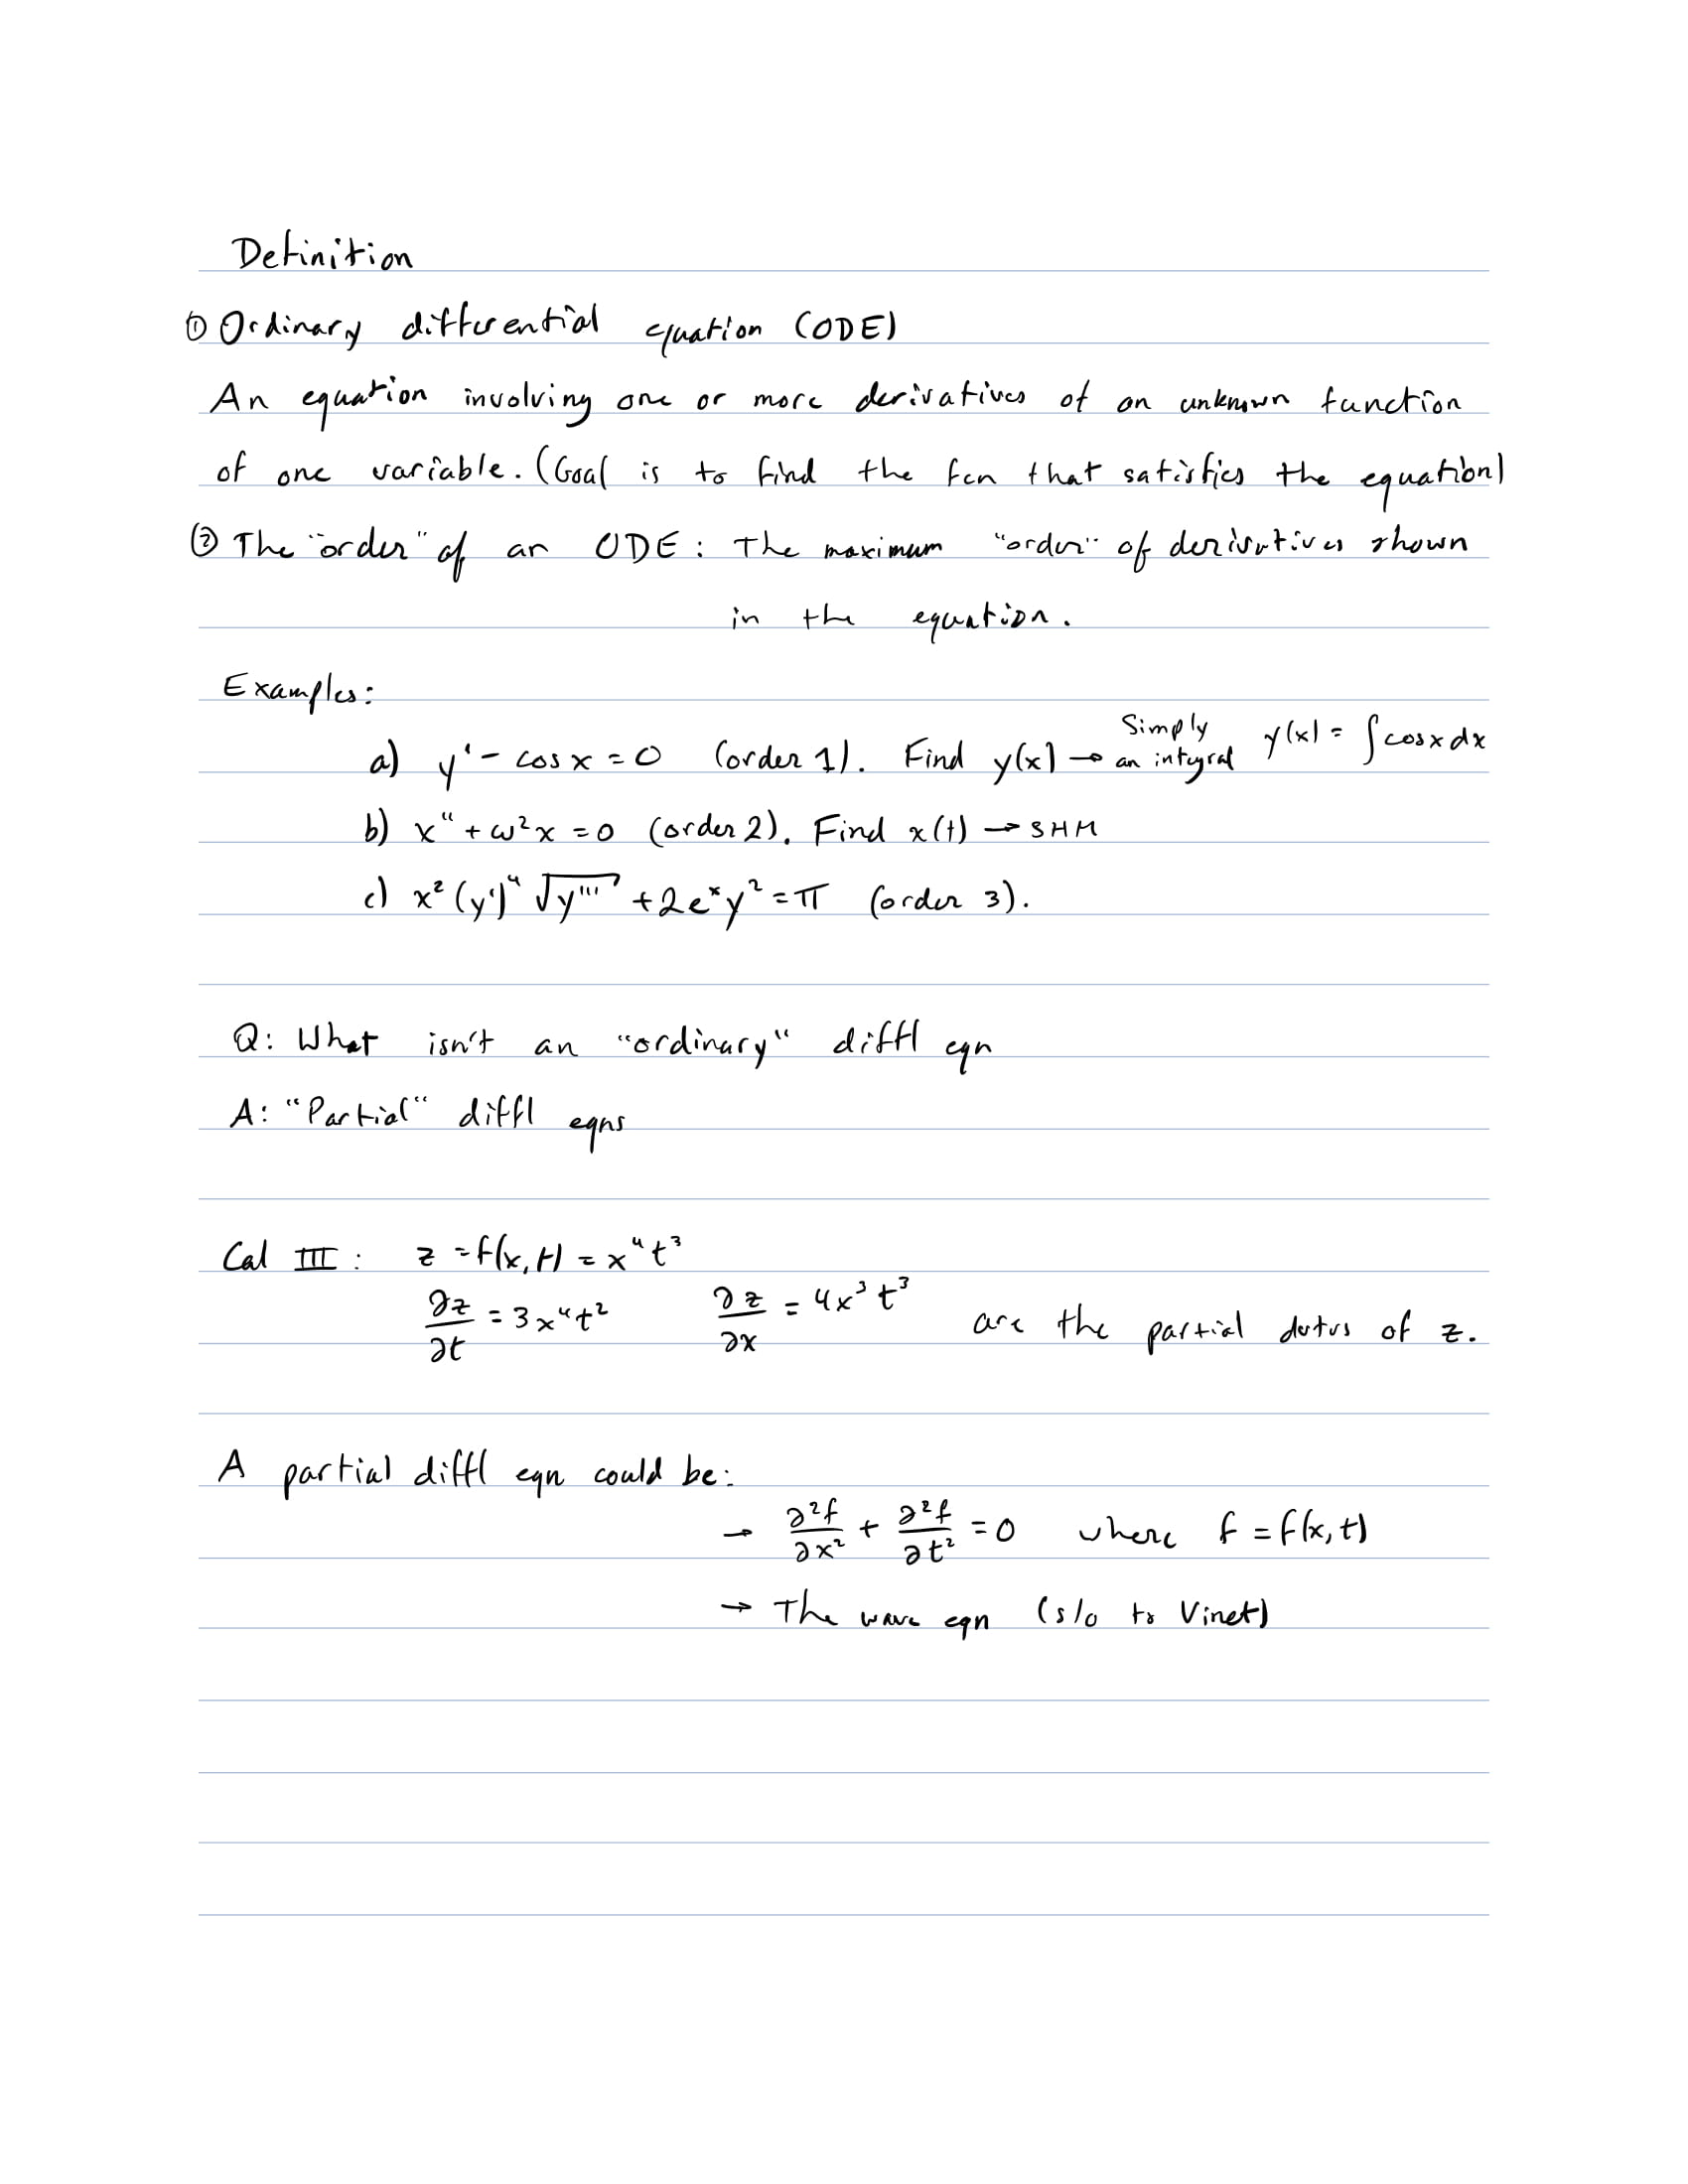 Definition
① Ordinary differential equation (ODE)
An equation involving one or more derivatives of an unknown function
of one variable. (Goal is to find the fcn that satisfies the equation)
② The "order" of an ODE: The maximum "order" of derivatives shown
in the equation.
Examples:
a) y' - cos x = 0 (order 1). Find y(x) → Simply an integral y(x) = ∫cos x dx
b) x'' + ω²x = 0 (order 2). Find x(t) → SHM
c) x² (y')⁴ √y''' + 2eˣy² = π (order 3).
Q: What isn't an "ordinary" diffl eqn
A: "Partial" diffl eqns
Cal III: z = f(x,t) = x⁴t³
∂z/∂t = 3x⁴t² ∂z/∂x = 4x³t³ are the partial of z.
A partial diffl eqn could be:
→ ∂²f/∂x² + ∂²f/∂t² = 0 where f = f(x,t)
→ The wave eqn (s/o to Vinet)